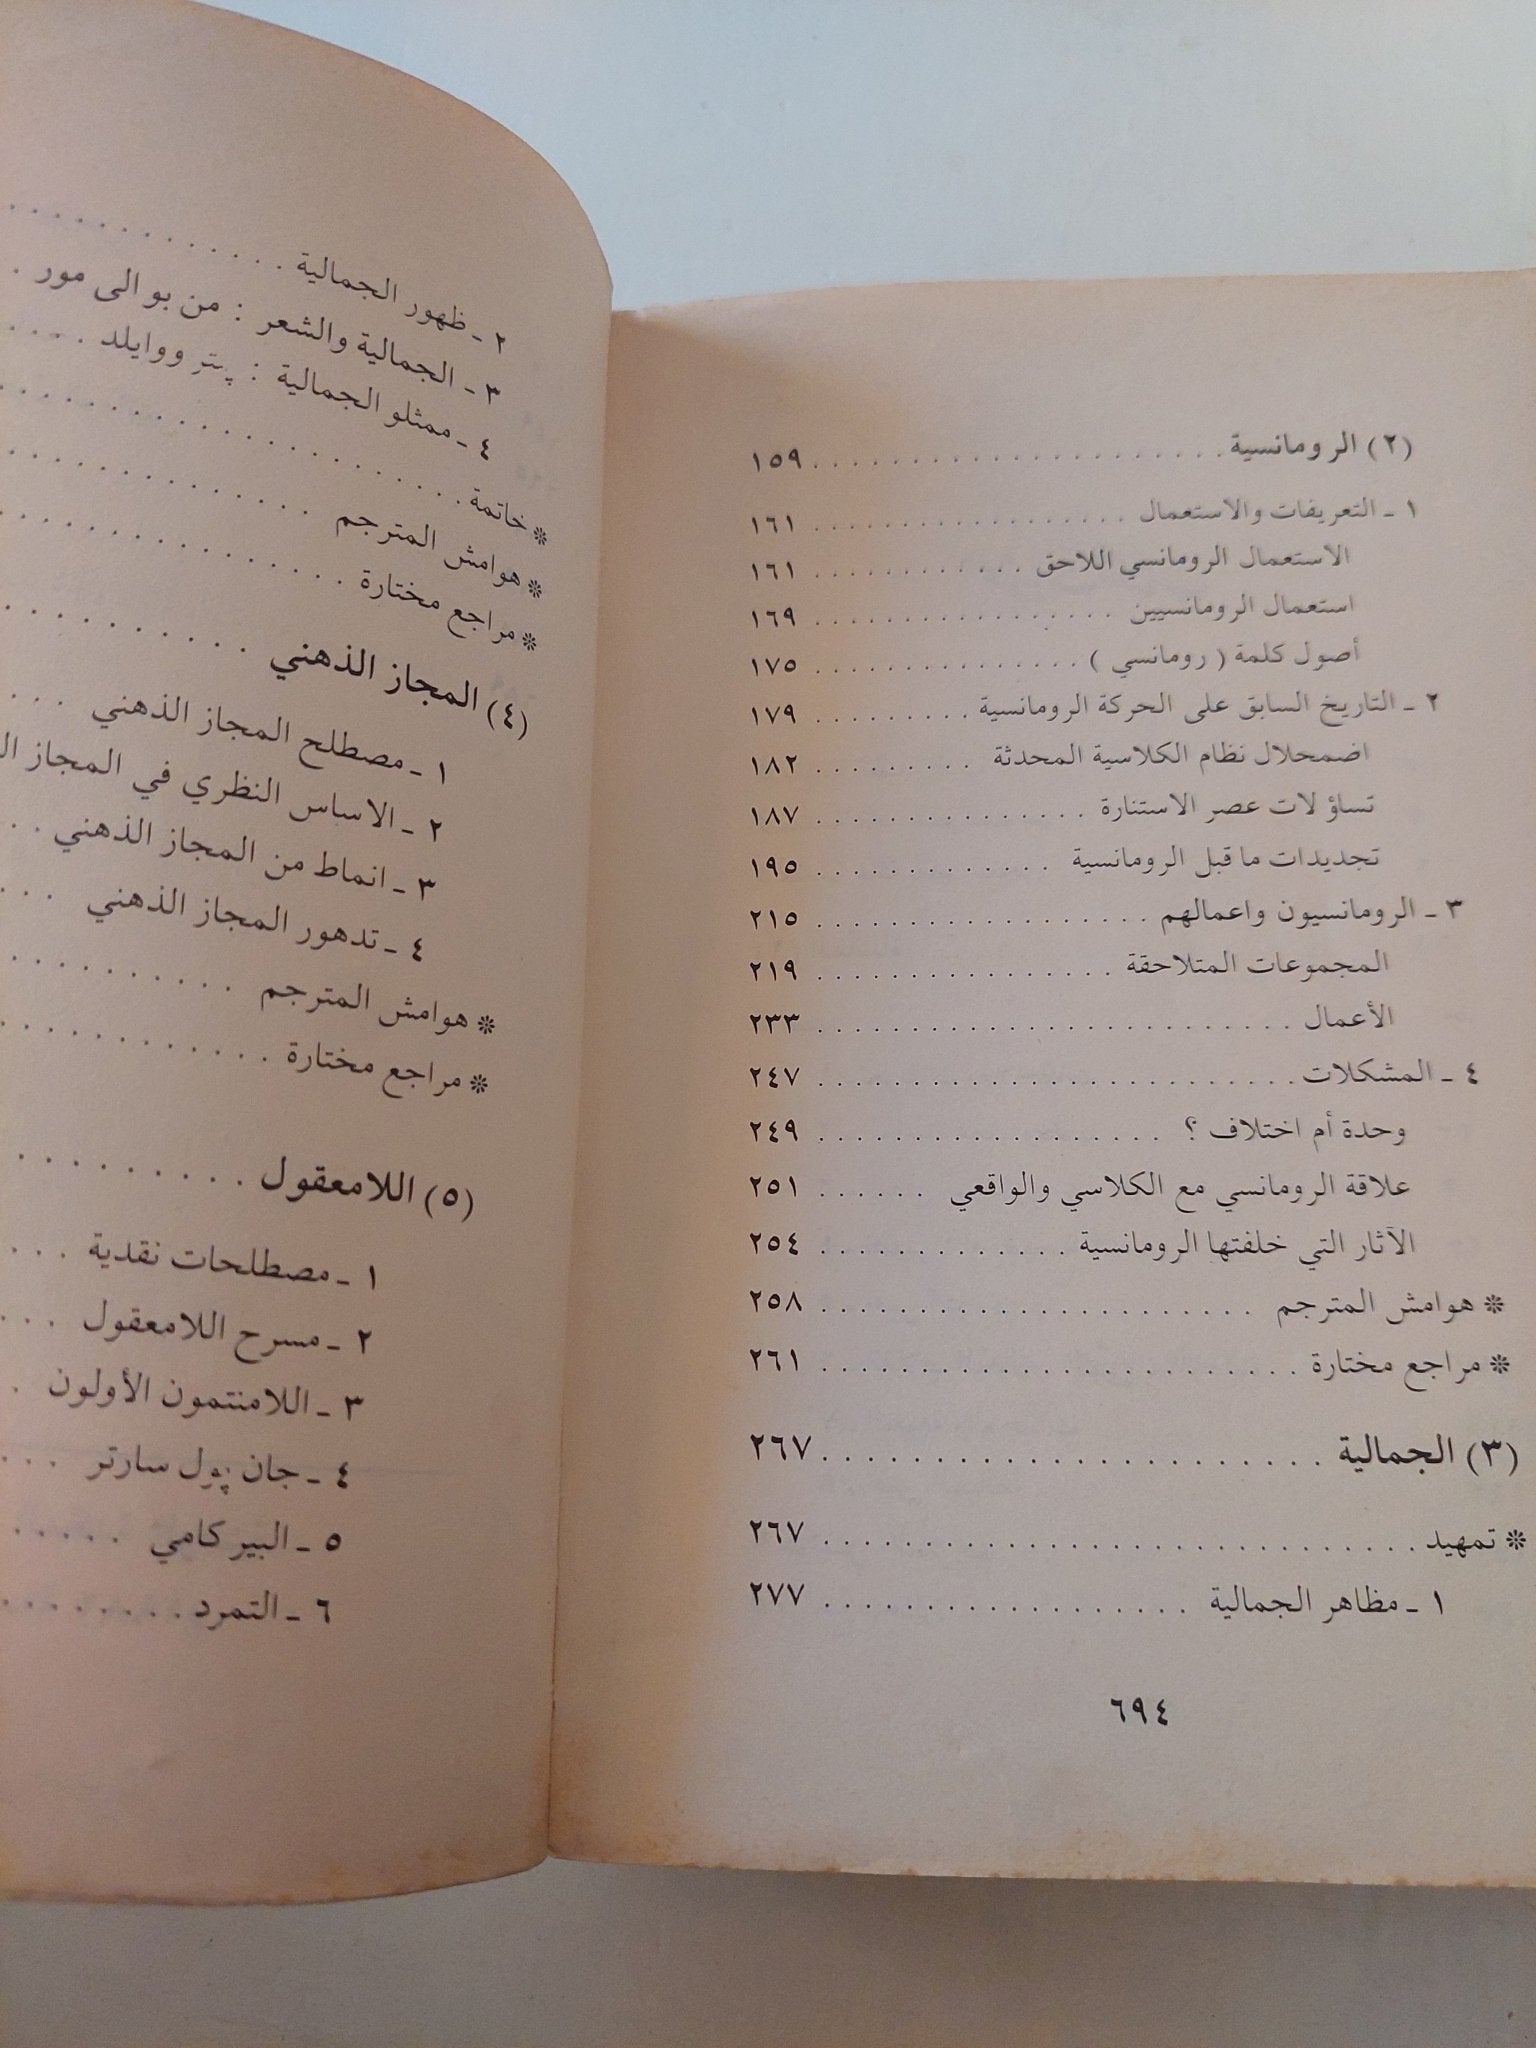 (٢) الرومانسية . . . . . . . . . . . . . . . . . . . . . ١٥٩
١ ـ التعريفات والاستعمال . . . . . . . . . . . . . . . . . ١٦١
الاستعمال الرومانسي اللاحق . . . . . . . . . . . . ١٦١
استعمال الرومانسيين . . . . . . . . . . . . . . . . ١٦٩
أصول كلمة ( رومانسي ) . . . . . . . . . . . . . . ١٧٥
٢ ـ التاريخ السابق على الحركة الرومانسية . . . . . . . . . ١٧٩
اضمحلال نظام الكلاسية المحدثة . . . . . . . . . ١٨٢
تساؤ لات عصر الاستنارة . . . . . . . . . . . . . . . ١٨٧
تجديدات ما قبل الرومانسية . . . . . . . . . . . . . ١٩٥
٣ ـ الرومانسيون واعمالهم . . . . . . . . . . . . . . . . . . ٢١٥
المجموعات المتلاحقة . . . . . . . . . . . . . . . . ٢١٩
الأعمال . . . . . . . . . . . . . . . . . . . . . . . . . ٢٣٣
٤ ـ المشكلات . . . . . . . . . . . . . . . . . . . . . . . . . ٢٤٧
وحدة أم اختلاف ؟ . . . . . . . . . . . . . . . . . . ٢٤٩
علاقة الرومانسي مع الكلاسي والواقعي . . . . . . ٢٥١
الآثار التي خلفتها الرومانسية . . . . . . . . . . . . . ٢٥٤
❊ هوامش المترجم . . . . . . . . . . . . . . . . . . . . . . . ٢٥٨
❊ مراجع مختارة . . . . . . . . . . . . . . . . . . . . . . . . . ٢٦١
(٣) الجمالية . . . . . . . . . . . . . . . . . . . . . . . . ٢٦٧
❊ تمهيد . . . . . . . . . . . . . . . . . . . . . . . . . . . . . . . ٢٦٧
١ ـ مظاهر الجمالية . . . . . . . . . . . . . . . . . . . ٢٧٧
٦٩٤
٢ ـ ظهور الجمالية . . . . . . . . . . . . .
٣ ـ الجمالية والشعر : من بو الى مور .
٤ ـ ممثلو الجمالية : پيتر ووايلد . . . .
❊ خاتمة . . . . . . . . . . . . . . . . . . . . .
❊ هوامش المترجم . . . . . . . . . . . . . .
❊ مراجع مختارة . . . . . . . . . . . . . . . .
(٤) المجاز الذهني . . . . . . . . . .
١ ـ مصطلح المجاز الذهني . . .
٢ ـ الاساس النظري في المجاز
٣ ـ انماط من المجاز الذهني . .
٤ ـ تدهور المجاز الذهني . . .
❊ هوامش المترجم . . . . . . . . . .
❊ مراجع مختارة . . . . . . . . . . . .
(٥) اللامعقول . . . . . . . . . .
١ ـ مصطلحات نقدية . . . .
٢ ـ مسرح اللامعقول . . . .
٣ ـ اللامنتمون الأولون .
٤ ـ جان پول سارتر . . . .
٥ ـ البير كامي . . . . . .
٦ ـ التمرد . . . . . . . .